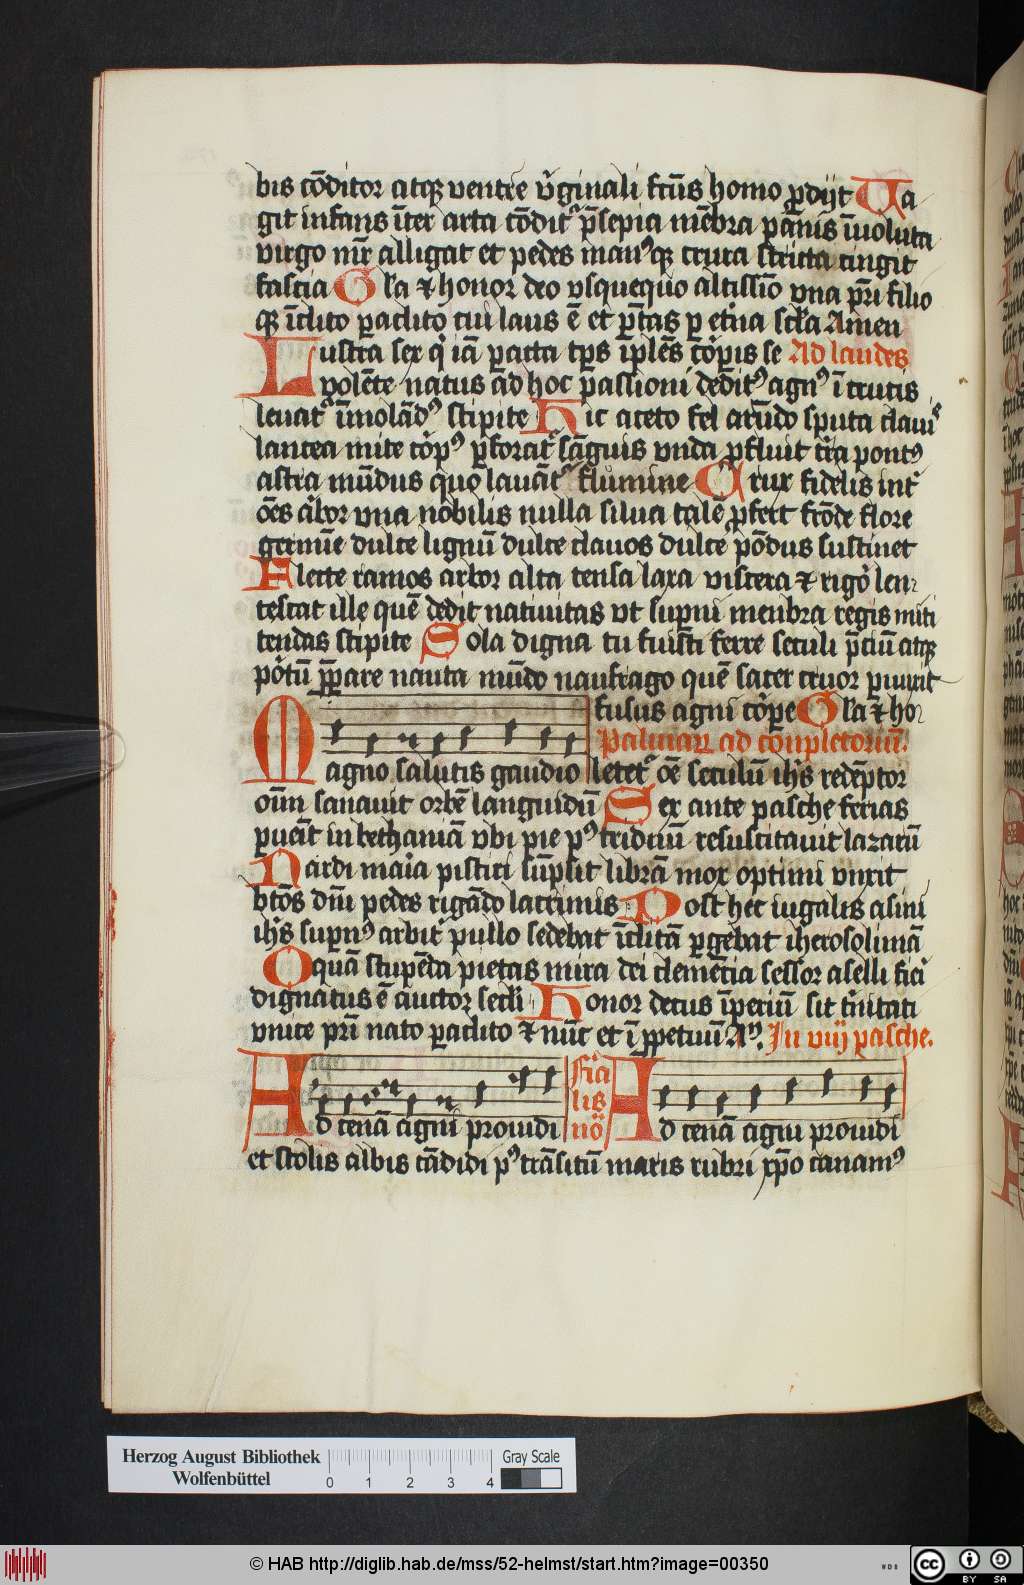 bis cōditor atqꝫ ventre v̓ginali fctūs homo ꝓdijt Ua
git infans īter arta cōdit᷑ p̄sepia mēbra pānis īuoluta
virgo mr̄ alligat et pedes manꝰqꝫ crura stricta cingit
fascia Gl̄a ⁊ honor deo vsquequo altissīo vna pr̄i filio
qꝫ īclito ꝑaclito cui laus ē et ptās ꝑ et̓na scl̄a Amen
Lustra sex q̇ iā ꝑacta tp̄s īplēs cor̓pis se Ad laudes
volēte natus ad hoc passioni deditꝰ agnꝰ ī crucis
leuat᷑ īmolādꝰ stipite Hic aceto fel arūdo sputa clauiˢ
lancea mite cor̓pꝰ ꝑforat᷑ sāguis vnda ꝓfluit tr̄a pontꝰ
astra mūdus quo lauāt᷑ flumine Crux fidelis int̓
oēs ar̓bor vna nobilis nulla silua talē ꝓfert frōde flore
germīe dulce lignū dulce clauos dulce pōdus sustinet
Flecte ramos arbor alta tensa laxa viscera ⁊ rigor̓ len
tescat ille quē dedit natiuitas vt sup̄ni menbra regis miti
tendas stipite Sola digna tu fuisti ferre seculi p̄ciū atqꝫ
por̓tū p̄pare nauta mūdo naufrago quē sacer cruor ꝑunxit
fusus agni cor̓pe Gl̄a ⁊ hoꝛ
Palmaꝝ ad conpletoriū.
Magno salutis gaudio letet᷑ oē seculū ih̄s redēptor
oīm sanauit orbē languidū Sex ante pasche ferias
vuēit in bethaniā vbi pie pꝰ triduū resuscitauit lazarū
Nardi maria pistici sūpsit librā mox optimi vnxit
btōs dn̄i pedes rigādo lacrimis Post hec iugalis asini
ih̄s sup̄nꝰ arbit̓ pullo sedebat īclitā ꝑgebat iherosolimā
O quā stupēda pietas mira dei clemēcia sessor aselli fieri
dignatus ē auctor secli Honor decus īperiū sit t̓nitati
vnice pr̄i nato ꝑaclito ⁊ nūc et ī ꝑpetuū Aꝰ. In viij pasche.
Ad cenā agni prouidi
Fiā
lis
nō
Ad cenā agni prouidi
et stolis albis cādidi pꝰ trāsitū maris rubri xp̄o canamꝰ
Herzog August Bibliothek
Wolfenbüttel
0 1 2 3 4
Gray Scale
© HAB http://diglib.hab.de/mss/52-helmst/start.htm?image=00350
WDB
cc BY SA